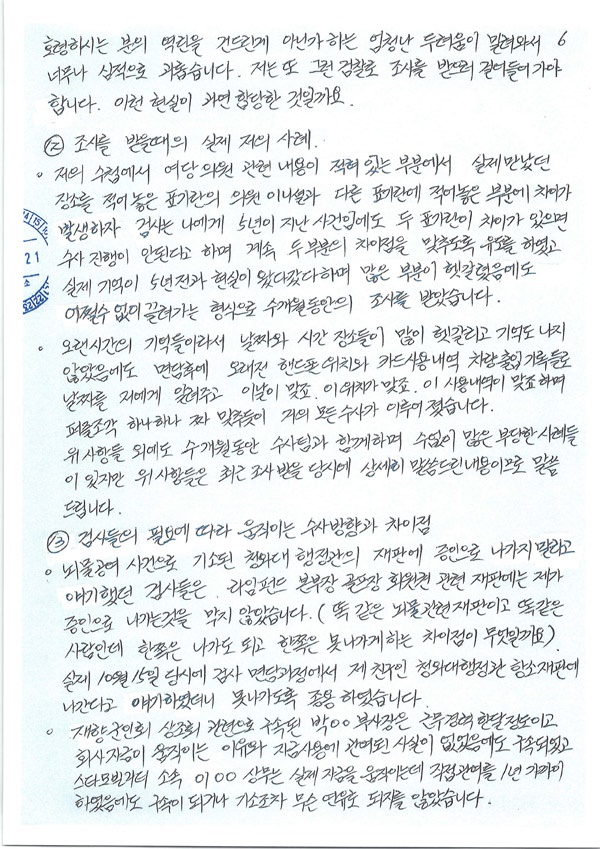 호령하시는 분의 역린을 건드린게 아닌가 하는 엄청난 두려움이 밀려와서 6
너무나 심적으로 괴롭습니다. 저는 또 그런 검찰로 조사를 받으러 걸어들어가야
합니다. 이런 현실이 과연 합당한 것일까요.
⑫ 조사를 받을때의 실제 저의 사례.
• 저의 수첩에서 여당 의원 관련 내용이 적혀 있는 부분에서 실제 만났던
장소를 적어 놓은 표기란의 의원 이니셜과 다른 표기란에 적어놓은 부분에 차이가
발생하자 검사는 나에게 5년이 지난 사건임에도 두 표기란이 차이가 있으면
수사 진행이 안된다고 하며 계속 두 부분의 차이점을 맞추도록 유도를 하였고
실제 기억이 5년전과 현실이 왔다갔다하며 많은 부분이 헷갈렸음에도
어쩔수 없이 끌려가는 형식으로 수개월동안의 조사를 받았습니다.
• 오랜시간의 기억들이라서 날짜와 시간 장소들이 많이 헷갈리고 기억도 나지
않았음에도 면담후에 오래전 핸드폰 위치와 카드사용내역 차량출입 기록들로
날짜를 저에게 알려주고 이날이 맞죠. 이위치가 맞죠. 이 사용내역이 맞죠 하며
퍼즐조각 하나하나 짜 맞추듯이 거의 모든 수사가 이루어 졌습니다.
위 사항들 외에도 수개월동안 수사팀과 함께하며 수없이 많은 부당한 사례들
이 있지만 위 사항들은 최근 조사 받을 당시에 상세히 말씀드린 내용이므로 말씀
드립니다.
⑬ 검사들의 필요에 따라 움직이는 수사방향과 차이점
• 뇌물공여 사건으로 기소된 청와대 행정관의 재판에 증인으로 나가지 말라고
얘기했던 검사들은. 라임펀드 본부장 골프장 회원권 관련 재판에는 제가
증인으로 나가는것을 막지 않았습니다. (똑같은 뇌물관련재판이고 똑같은
사람인데 한쪽은 나가도 되고 한쪽은 못나가게 하는 차이점이 무엇일까요)
실제 10월 15일 당시에 검사 면담과정에서 제 친구인 청와대행정관 항소재판에
나간다고 얘기하였더니 못나가도록 종용 하였습니다.
• 재향군인회 상조회 관련으로 구속된 박○○ 부사장은 근무경력 한달정도이고
회사자금이 움직이는 이유와 자금사용에 관여된 사실이 없었음에도 구속되었고
스타모빌리티 소속 이○○ 상무는 실제 자금을 움직이는데 직접관여를 1년 가까이
하였음에도 구속이 되거나 기소조차 무슨 연유로 되지를 않았습니다.
21